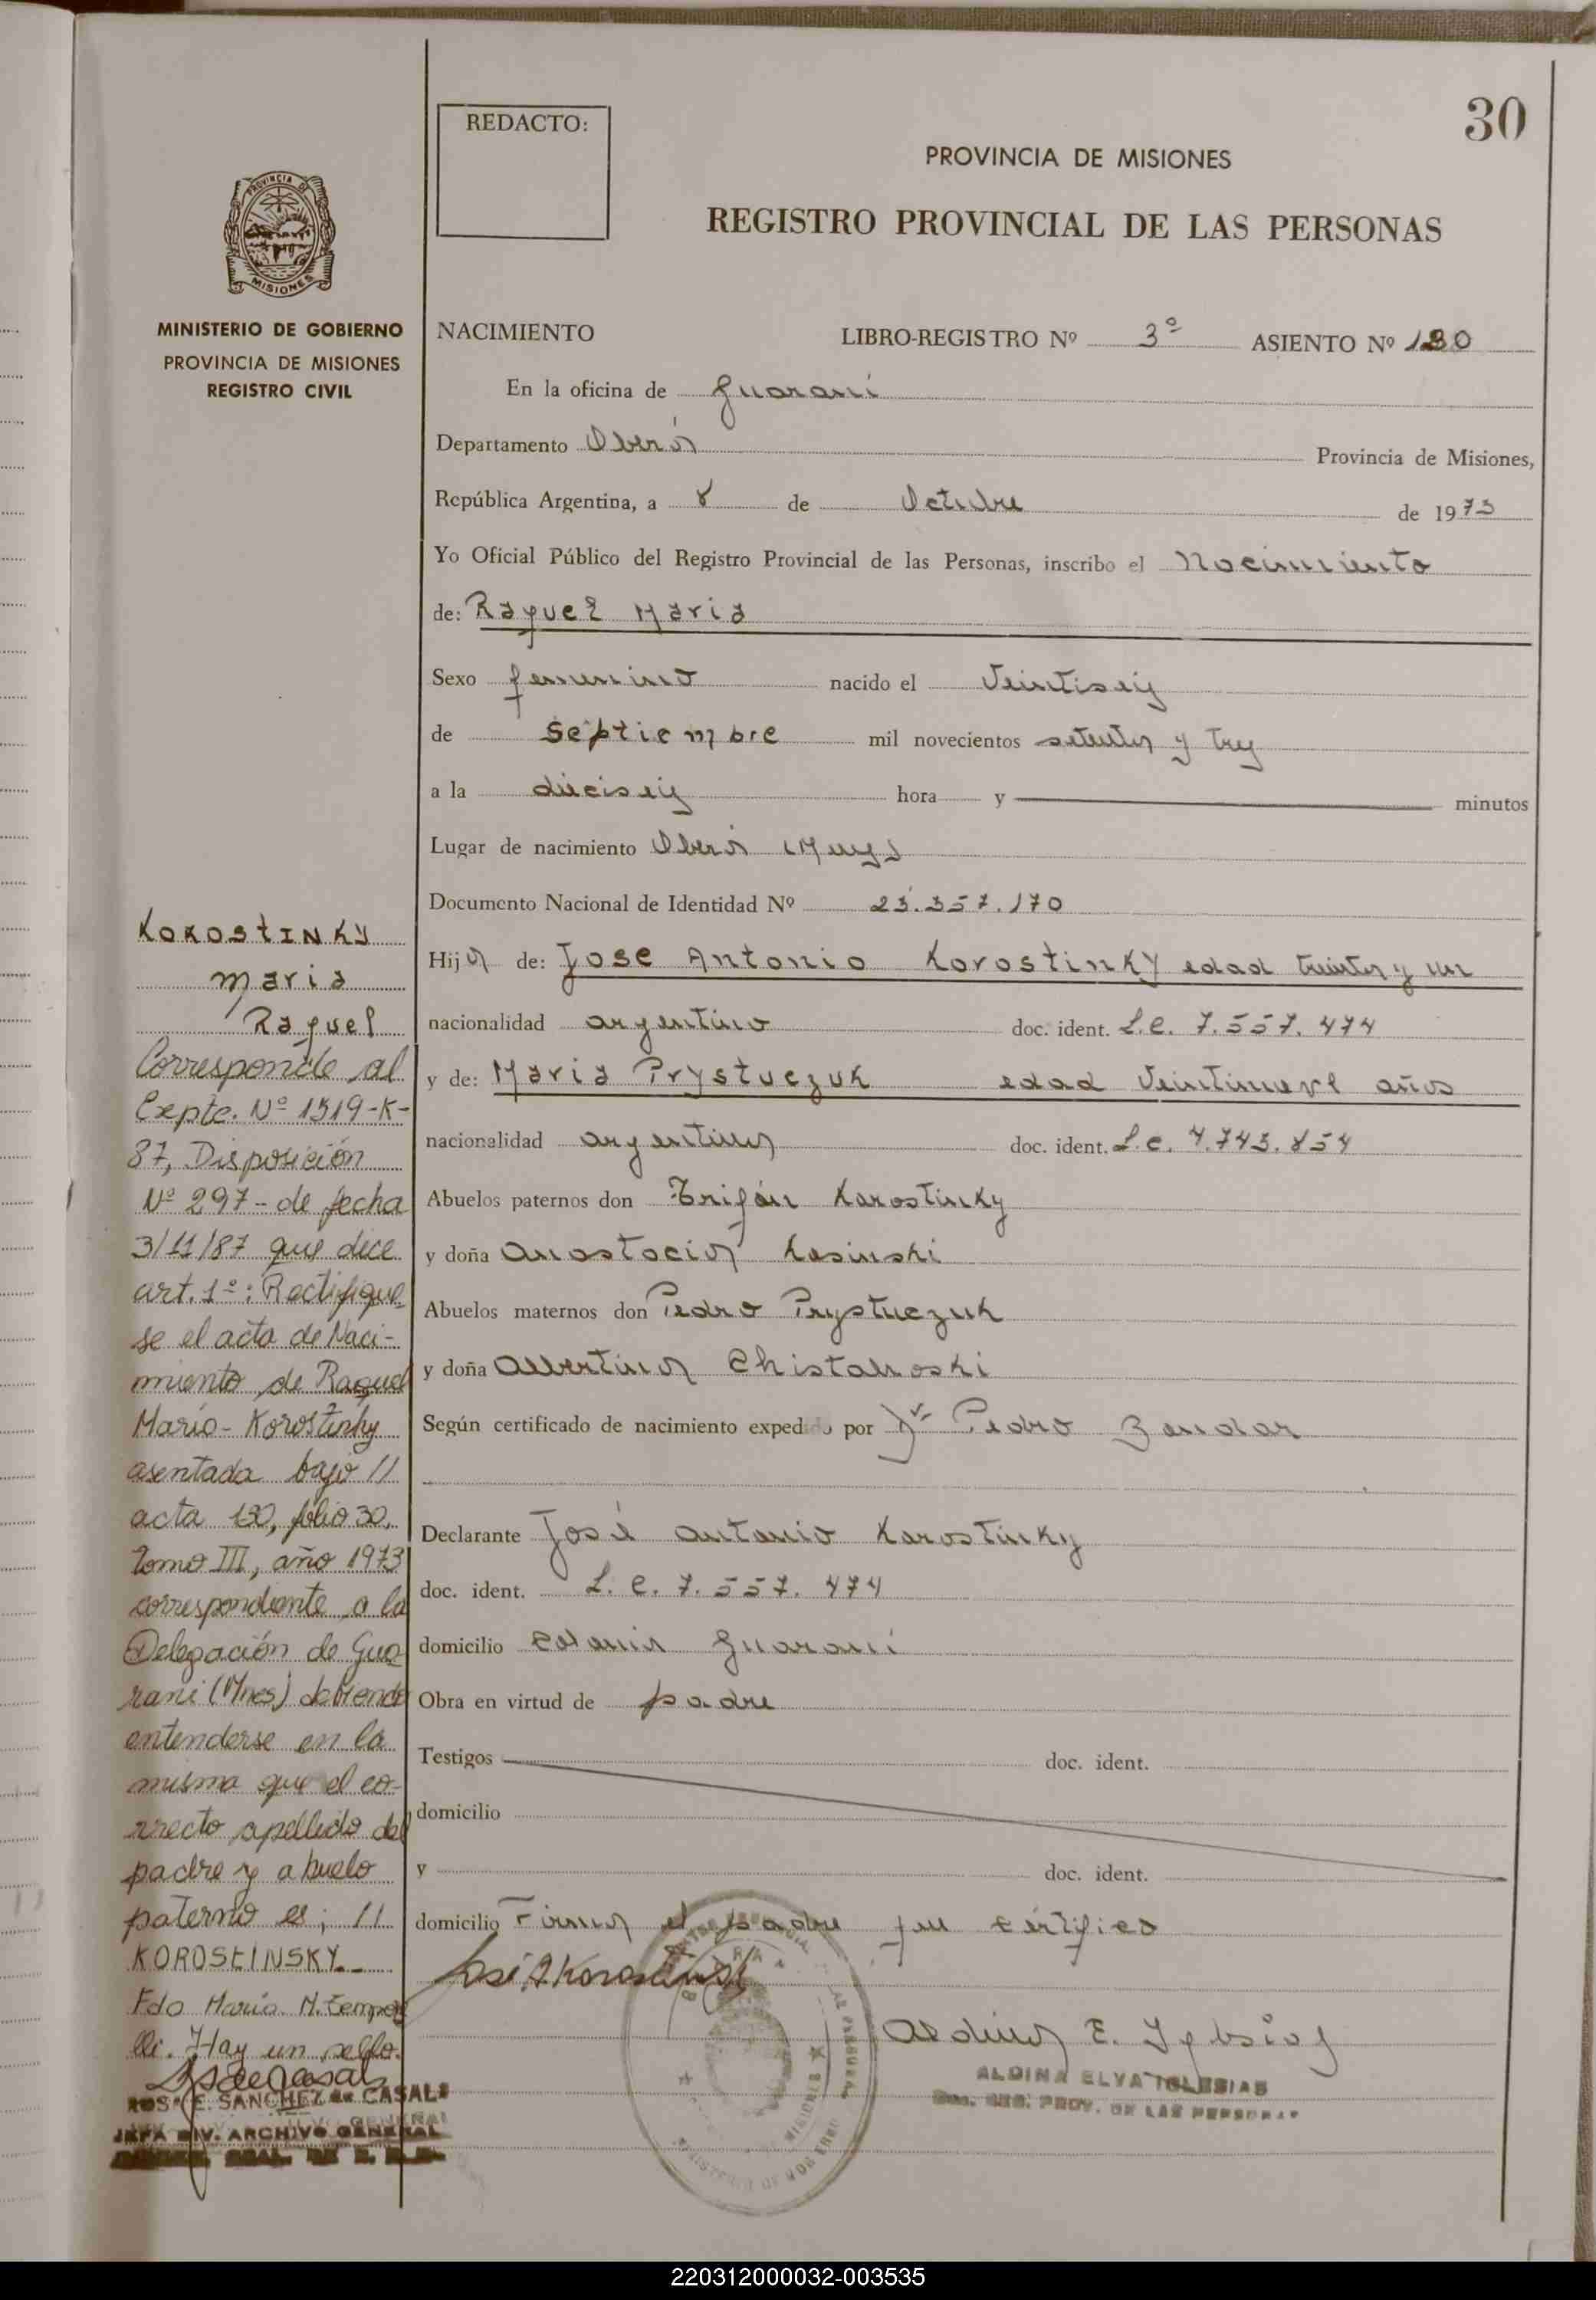 30
REDACTO:
PROVINCIA DE MISIONES
REGISTRO PROVINCIAL DE LAS PERSONAS
PROVINCIA DE
MISIONES
MINISTERIO DE GOBIERNO
PROVINCIA DE MISIONES
REGISTRO CIVIL
NACIMIENTO LIBRO-REGISTRO Nº 3º ASIENTO Nº 130
En la oficina de Guaraní
Departamento Oberá Provincia de Misiones,
República Argentina, a 8 de Octubre de 1973
Yo Oficial Público del Registro Provincial de las Personas, inscribo el Nacimiento
de: Raquel Maria
Sexo femenino nacido el Veintiseis
de Septiembre mil novecientos setenta y tres
a la dieciseis hora y minutos
Lugar de nacimiento Oberá (Mnes)
Documento Nacional de Identidad Nº 23.357.170
Hija de: Jose Antonio Korostinky edad treinta y un
nacionalidad argentino doc. ident. L.e. 7.557.474
y de: Maria Prystuczuk edad Veintinueve años
nacionalidad argentina doc. ident. L.c. 4.743.854
Abuelos paternos don Trifón Korostinky
y doña Anastacia Kasinski
Abuelos maternos don Pedro Prystuczuk
y doña Albertina Chistanoski
Según certificado de nacimiento expedido por Dr Pedro Zandar
Declarante José Antonio Korostinky
doc. ident. L.e. 7.557.474
domicilio Colonia Guaraní
Obra en virtud de padre
Testigos doc. ident.
domicilio
y doc. ident.
domicilio Firma el padre que certifico
José A Korostinsky
Aldina E. Iglesias
ALDINA ELVA IGLESIAS
REG. PROV. DE LAS PERSONAS
KOROSTINKY
Maria
Raquel
Corresponde al
Expte. Nº 1319-K-
87, Disposición
Nº 297- de fecha
3/11/87 que dice
art. 1º: Rectifique-
se el acta de Naci-
miento de Raquel
María- Korostinky
asentada bajo //
acta 130, folio 30,
tomo III, año 1973
correspondiente a la
Delegación de Gua-
rani (Mnes) debiendo
entenderse en la
misma que el co-
rrecto apellido del
padre y abuelo
paterno es; //
KOROSTINSKY.-
Fdo Maria M. Tempo
lli. Hay un sello.
ROSA E. SANCHEZ de CASALS
JEFA DIV. ARCHIVO GENERAL
220312000032-003535